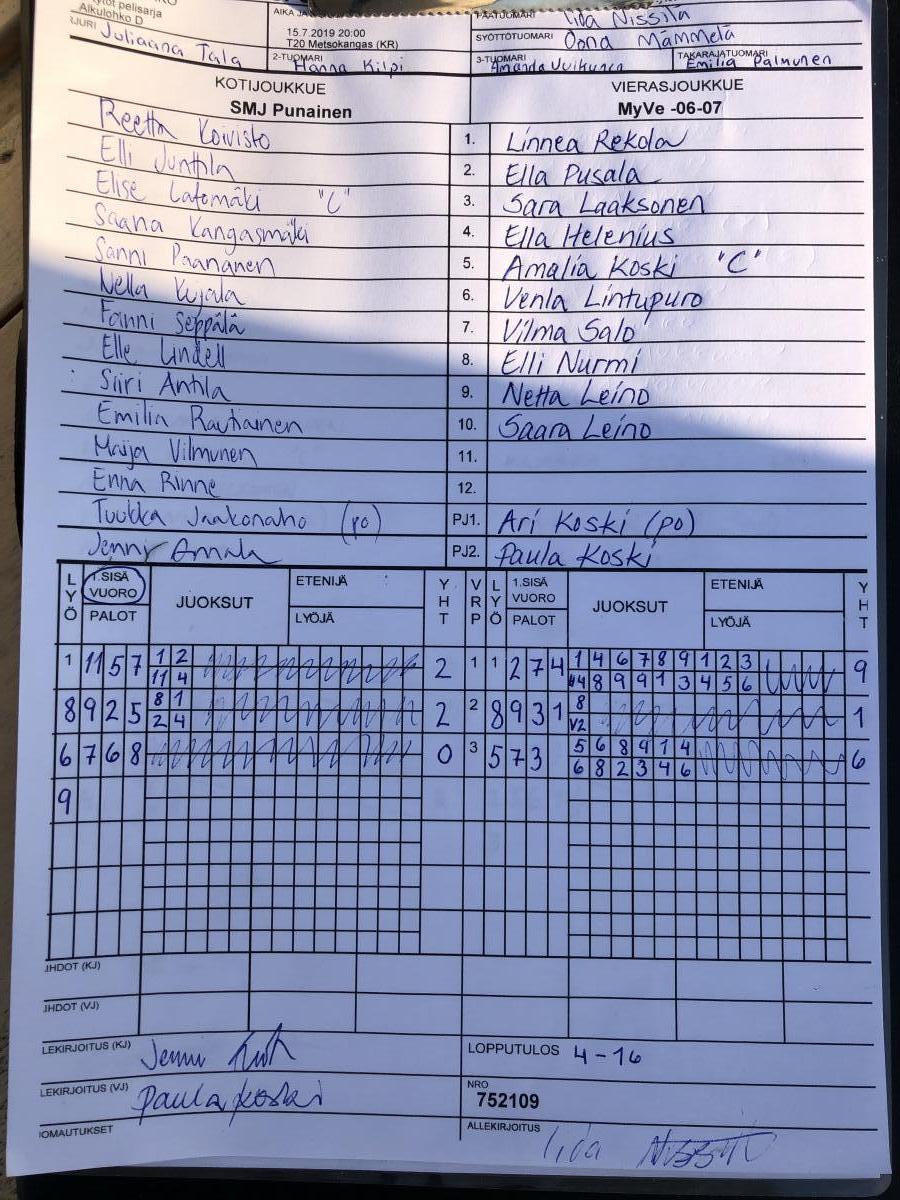 pelisarja
Alkulohko D
Juliaana Tala
15.7.2019 20:00
T20 Metsokangas (KR)
2-TUOMARI Hanna Kilpi
Iida Nissilä
SYÖTTÖTUOMARI Oona Mämmelä
3-TUOMARI Amanda
TAKARAJATUOMARI Emilia Palmunen
KOTIJOUKKUE VIERASJOUKKUE
SMJ Punainen MyVe -06-07
Reetta Koivisto 1. Linnea Rekola
Elli Junttila 2. Ella Pusala
Elise Latomäki "C" 3. Sara Laaksonen
Saana Kangasmäki 4. Ella Helenius
Sanni Paananen 5. Amalia Koski "C"
Nella Kujala 6. Venla Lintupuro
Fanni Seppälä 7. Vilma Salo
Elle Lindell 8. Elli Nurmi
Siiri Anttila 9. Netta Leino
Emilia Rautiainen 10. Saara Leino
Maija Vilmunen 11.
Enna Rinne 12.
Tuukka Jaakonaho (po) PJ1. Ari Koski (po)
Jenni Annala PJ2. Paula Koski
LYÖ 1.SISÄ VUORO PALOT JUOKSUT ETENIJÄ LYÖJÄ YHT VRP LYÖ 1.SISÄ VUORO PALOT JUOKSUT ETENIJÄ LYÖJÄ YHT
1 11 5 7 1 2 2 1 1 2 7 4 1 4 6 7 8 9 1 2 3 9
11 4 8 9 9 1 3 4 5 6
8 9 2 5 8 1 2 2 8 9 3 1 8 1
2 4 V2
6 7 6 8 0 3 5 7 3 5 6 8 9 1 4 6
6 8 2 3 4 6
9
(KJ)
(VJ)
(KJ) Jenni LOPPUTULOS 4-16
(VJ) Paula Koski NRO 752109
ALLEKIRJOITUS Iida